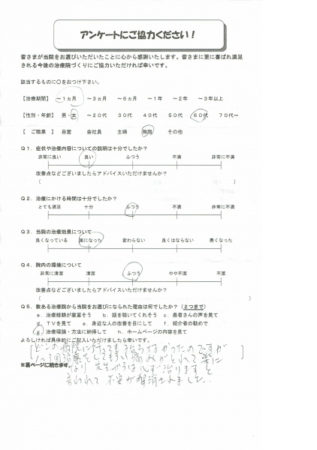 アンケートにご協力ください!
皆さまが当院をお選びいただいたことに心から感謝いたします。皆さまに更に喜ばれ満足
される今後の治療院づくりにご協力いただければ幸いです。
該当するものに○をおつけ下さい。
【治療期間】 ~1ヵ月 ~3ヵ月 ~6ヵ月 ~1年 ~2年 ~3年以上
【性別・年齢】 男・女 ~20代 30代 40代 50代 60代 70代~
【ご職業】 自営 会社員 主婦 無職 その他
Q1. 症状や治療内容についての説明は十分でしたか?
非常に良い 良い ふつう 不満 非常に不満
改善点などございましたらアドバイスいただけませんか?
Q2. 治療にかける時間は十分でしたか?
とても満足 十分 ふつう 不満 非常に不満
Q3. 当院の治療効果について
良くなっている 楽になった 変わらない 良くはならない 悪くなった
Q4. 院内の環境について
非常に満足 満足 ふつう やや不満 不満
改善点などございましたらアドバイスいただけませんか?
Q5. 数ある治療院から当院をお選びになられた理由は何でしたか?(2つまで)
a. 治療経験が豊富そう b. 話を聴いてくれそう c. 患者さんの声を見て
d. TVを見て e. 身近な人の改善を目にして f. 紹介者の勧めで
g. 治療理論・方法に納得して h. ホームページの内容を見て
よろしければ具体的にご記入いただけましたら幸いです。
どこの病院に行っても治らなかったのですが
※裏ページに続きます